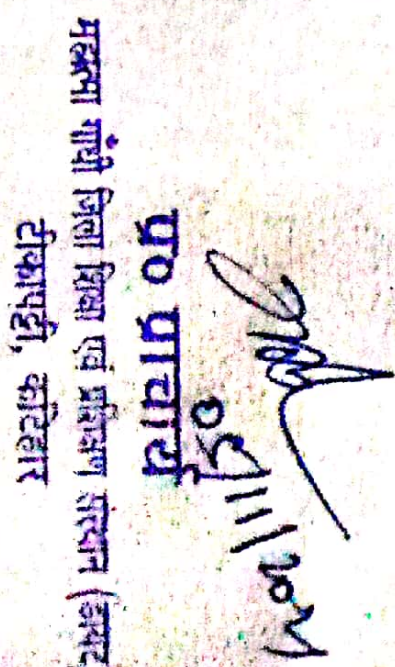 05/11/2011
प्र० प्राचार्य
महात्मा गाँधी जिला शिक्षा एवं प्रशिक्षण संस्थान (डायट
टीकापट्टी, कटिहार